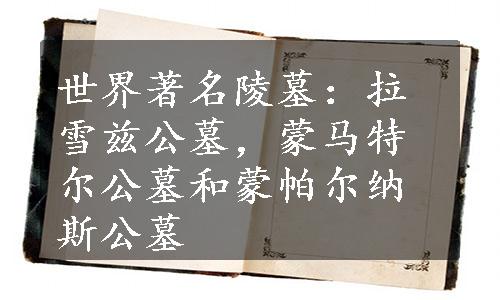 世界著名陵墓：拉
雪兹公墓，蒙马特
尔公墓和蒙帕尔纳
斯公墓